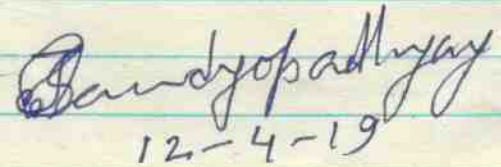 SBandyopadhyay
12-4-19